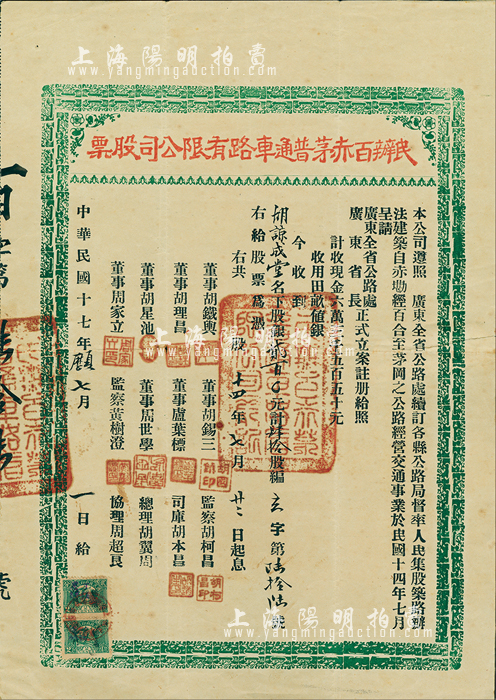 上海陽明拍賣
www.yangmingauction.com
民辦百赤茅普通車路有限公司股票
本公司遵照 廣東全省公路處續訂各縣公路局督率人民集股築路辦
法建築自赤磡經百合至茅岡之公路經營交通事業於民國十四年七月
呈請
廣東全省公路處正式立案註册給照
廣東省長
計收現金六萬
收用田畝值銀
今收到
胡 成堂名下股銀 百 元計 股編 玄字第陸拾 號
右給股票爲憑
右共 股 十四年七月廿二日起息
董事胡鐵輿 董事胡錫三 監察胡柯昌
董事胡理昌 董事盧葉標 司庫胡本昌
董事胡星池 董事周世學 總理胡翼周
董事周家立 監察黃樹澄 協理周超良
中華民國十七年 七月 一日給
百字第 號
上海陽明拍賣
www.yangmingauction.com